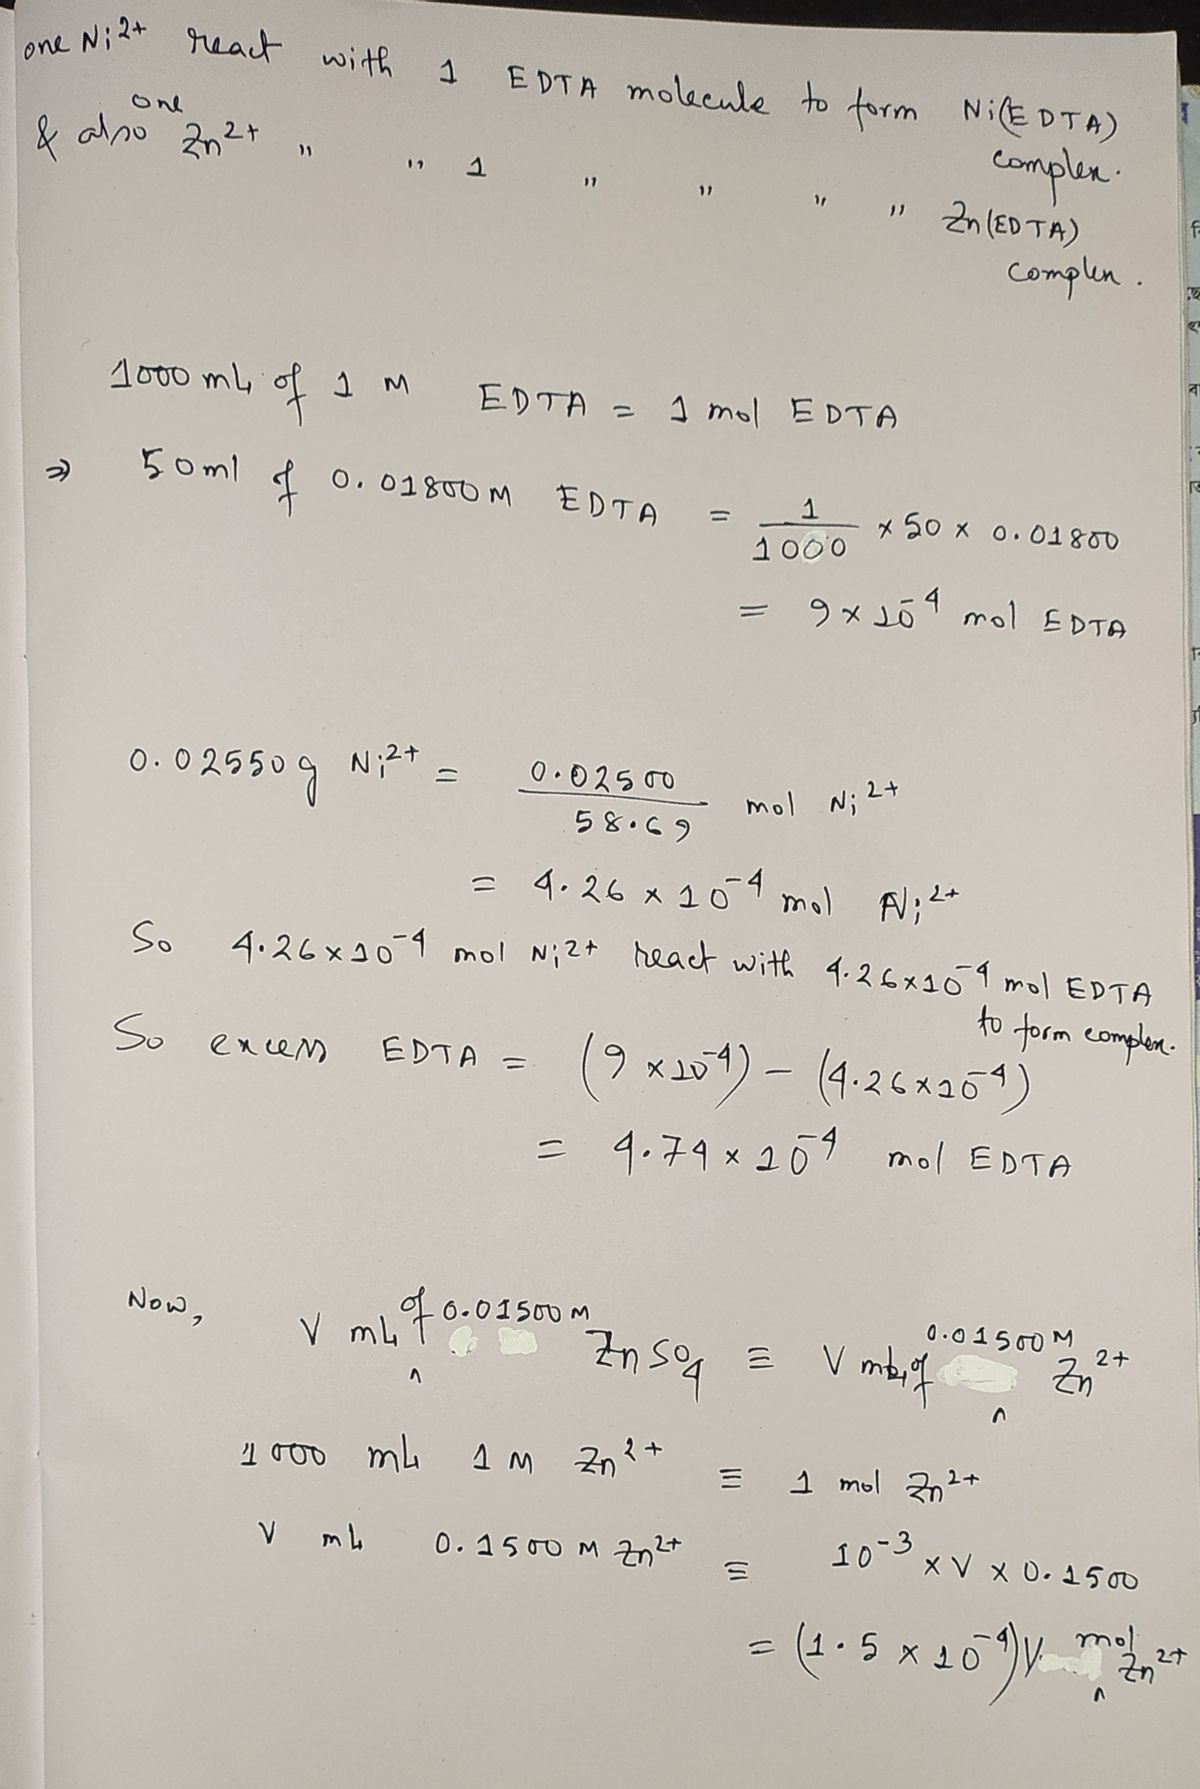 one Ni²⁺ react with 1 EDTA molecule to form Ni(EDTA) complex.
& also one Zn²⁺ " " 1 " " " " Zn(EDTA) complex.
1000 mL of 1 M EDTA = 1 mol EDTA
⇒ 50ml of 0.01800M EDTA = 1/1000 × 50 × 0.01800
= 9 × 10⁻⁴ mol EDTA
0.02550g Ni²⁺ = 0.02500/58.69 mol Ni²⁺
= 4.26 × 10⁻⁴ mol Ni²⁺
So 4.26×10⁻⁴ mol Ni²⁺ react with 4.26×10⁻⁴ mol EDTA to form complex.
So excess EDTA = (9 ×10⁻⁴) – (4.26×10⁻⁴)
= 4.74 × 10⁻⁴ mol EDTA
Now, V mL of 0.01500 M ZnSO₄ ≡ V mL of 0.01500 M Zn²⁺
1000 mL 1 M Zn²⁺ ≡ 1 mol Zn²⁺
V mL 0.1500 M Zn²⁺ ≡ 10⁻³ × V × 0.1500
= (1.5 × 10⁻⁴)V mol Zn²⁺